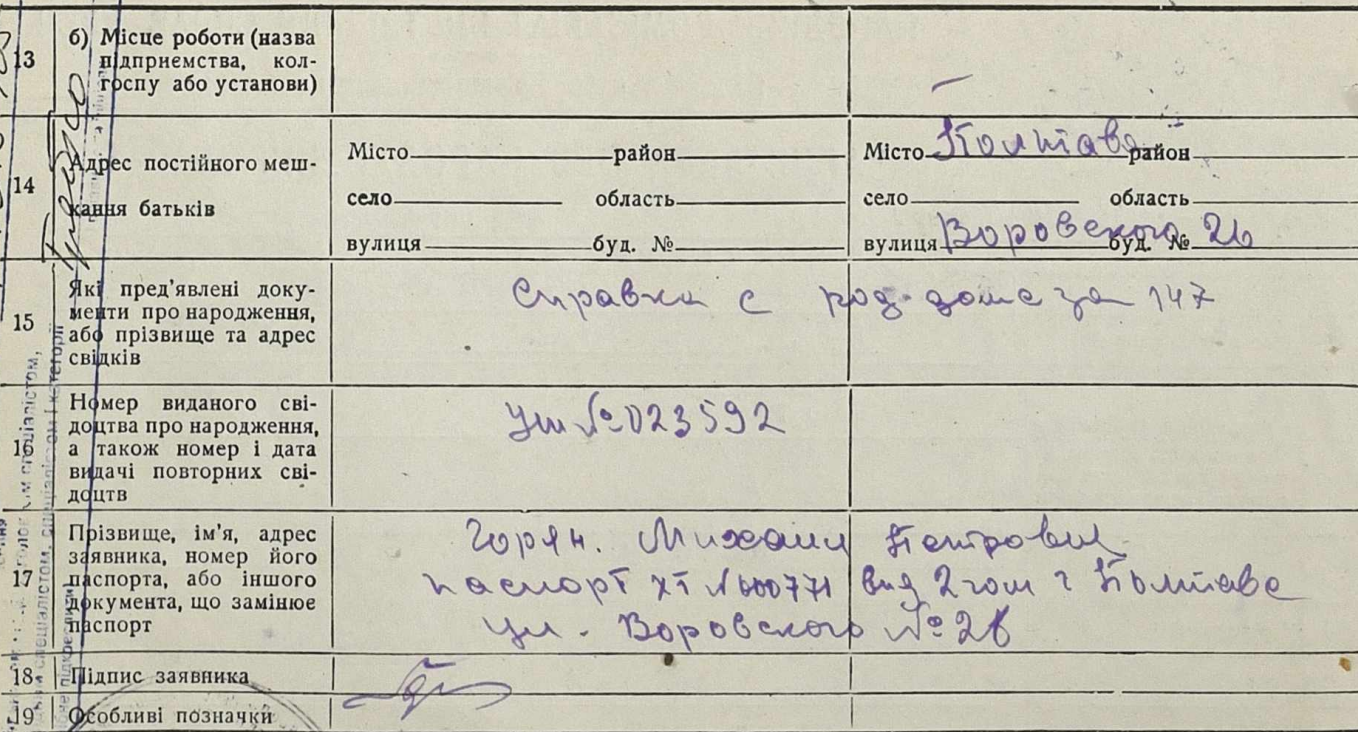 13 б) Місце роботи (назва
підприємства, кол-
госпу або установи) —
14 Адрес постійного меш-
кання батьків
Місто район
село область
вулиця буд. №
Місто Полтава район
село область
вулиця Воровского буд. № 2б
15 Які пред'явлені доку-
менти про народження,
або прізвище та адрес
свідків
Справка с род. дома за 147
16 Номер виданого сві-
доцтва про народження,
а також номер і дата
видачі повторних сві-
доцтв
№ 023592
17 Прізвище, ім'я, адрес
заявника, номер його
паспорта, або іншого
документа, що замінює
паспорт
Горян. Михаил Петрович
паспорт № 600771 выд 2 гом г Полтава
ул. Воровского № 2б
18 Підпис заявника
19 Особливі позначки